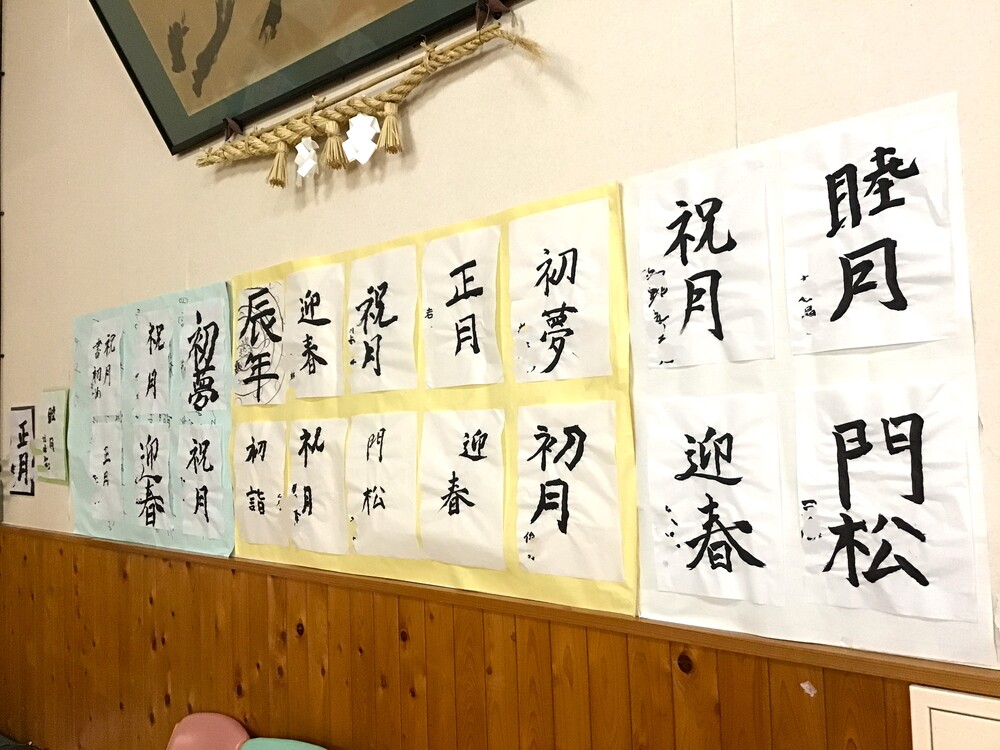 睦月
祝月
門松
迎春
初夢
正月
祝月
迎春
辰年
初月
迎春
門松
祝月
初詣
初夢
祝月
祝月
書初め
祝月
迎春
正月
睦月
正月